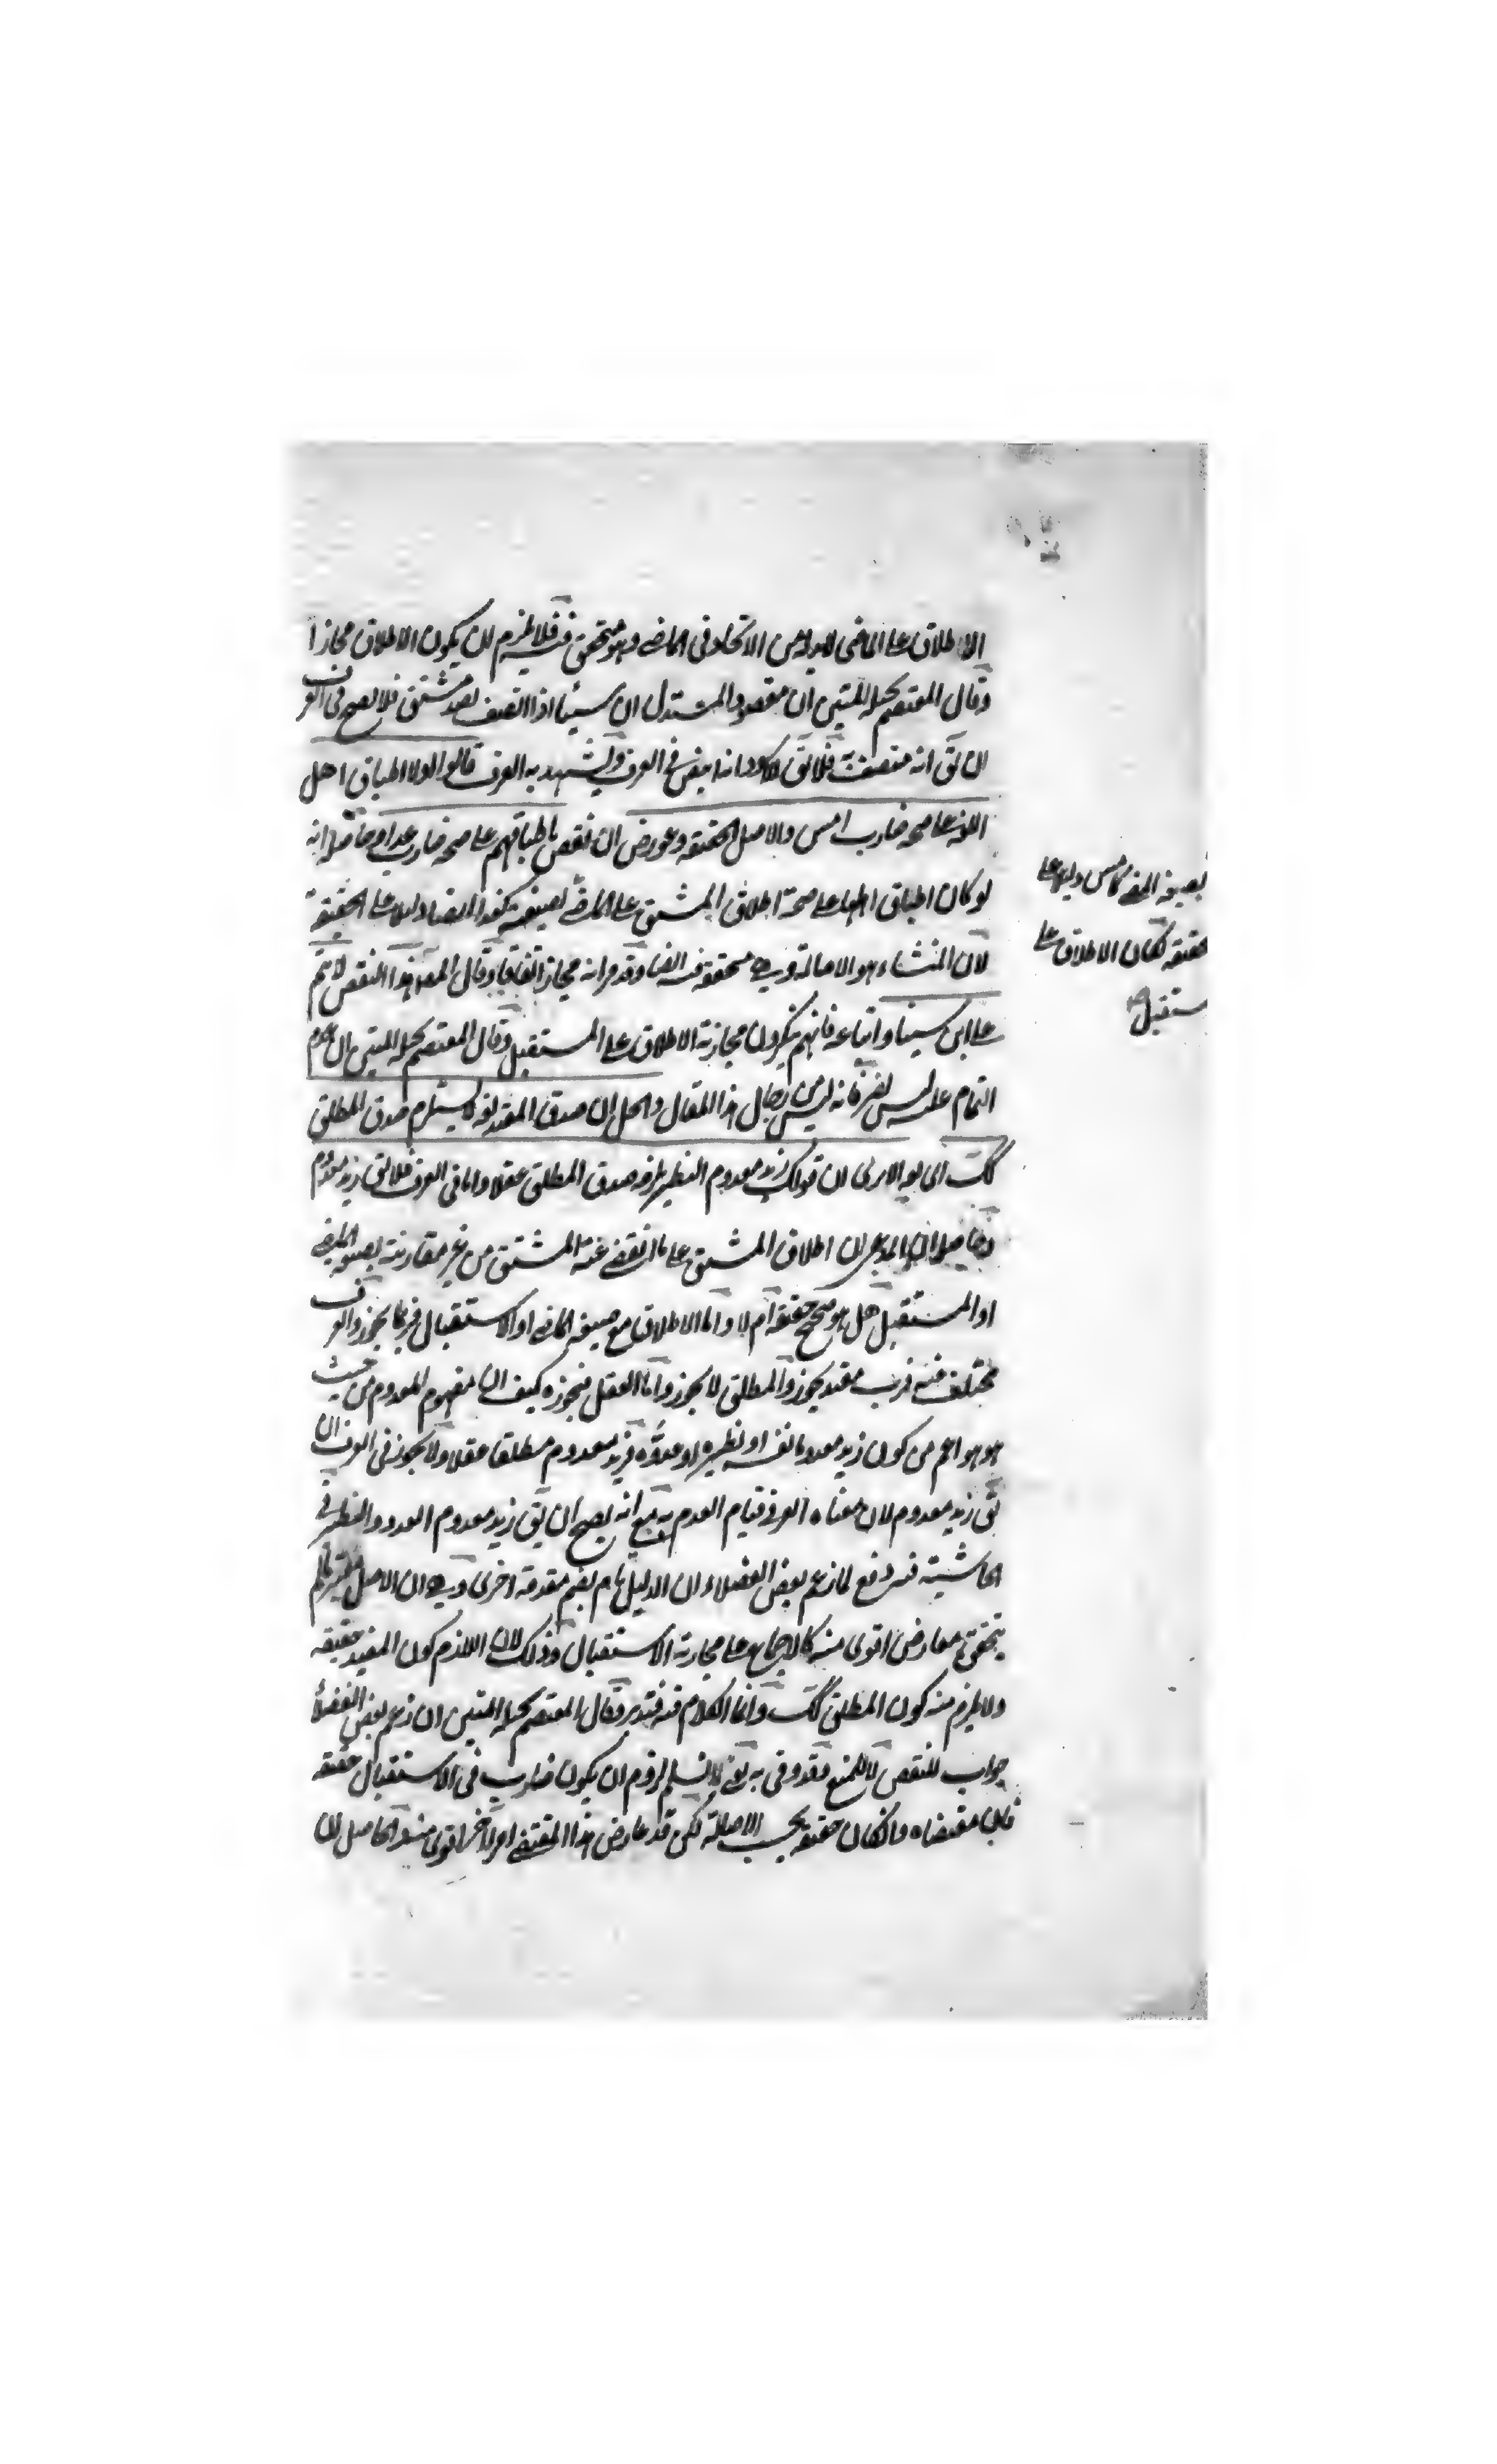 الاطلاق على الماضي لابد له من الاتحاد في الماضي وهو متحقق فيه فلا يلزم ان يكون الاطلاق مجازا
وقال المعتصم بحبله المتين ان مقصود المستدل ان شيئا اذا اتصف بضد مشتق فلا يصح في العرف
ان يق انه متصف به فلا يق للاسود انه ابيض في العرف ويشهد به العرف قالوا اولا اطباق اهل
اللغة على صحة ضارب امس والاصل الحقيقة وعورض اى نقض باطباقهم على صحة ضارب غدا وحاصله انه
لو كان اطباق اهلها على صحة اطلاق المشتق على الماضي بصيغة كغدا ايضا دليلا على الحقيقة
لان المنشاء هو الاصالة وهي متحققة فيه ايضا وقد مر انه مجاز اتفاقا وقال المص هذا النقض لا يتم
على ابن سينا واتباعه فانهم ينكرون مجازية الاطلاق على المستقبل وقال المعتصم بحبله المتين ان عدم
التمام عليه ليس بضر فانه ليس من رجال هذا المقال والحل ان صدق المقيد لغة لا يستلزم صدق المطلق
كك اى لغة الا يرى ان قولك زيد معدوم النظير يلزمه صدق المطلق عقلا واما في العرف فلا يق زيد معدوم
وحاصله ان المدعى ان اطلاق المشتق على ما انقضى عنه المشتق من غير مقارنته بصيغة الماضي
او المستقبل هل هو صحيح حقيقة ام لا واما الاطلاق مع صيغة الماضي او الاستقبال فربما يجوز والعرف
مختلف فيه فرب مقيد يجوز والمطلق لا يجوز واما العقل فيجوزه كيف ان مفهوم المعدوم من حيث
هو هو اعم من كون زيد معدوما نفسه او نظيره او عدوه فزيد معدوم مطلقا عقلا ولا يجوز في العرف ان
يق زيد معدوم لان معناه العرفي قيام العدم به مع انه يصح ان يق زيد معدوم العدو والنظير في
الحاشية فيه دفع لما زعم بعض الفضلاء ان الدليل تام بضم مقدمة اخرى وهي ان الاصل معتبر ما لم
يتحقق معارض اقوى منه كالاجماع على مجازية الاستقبال وذلك لان اللازم كون المقيد حقيقة
ولا يلزم منه كون المطلق كك وانما الكلام فيه فتدبر وقال المعتصم بحبله المتين ان زعم بعض الفضلاء
جواب للنقض لا للمنع وقد وفى به يعنى لا نسلم لزوم ان يكون ضارب في الاستقبال حقيقة
فان مقتضاه وان كان حقيقة بحسب الاصالة لكن قد عارض هذا المقتضى امر آخر اقوى منه والحاصل ان
بصيغة المضى كامس دليلا على
حقيقة لكان الاطلاق على